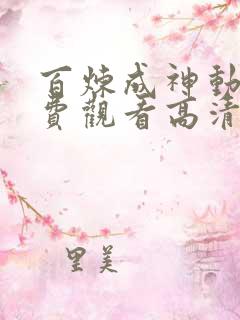 百煉成神動
費觀看高清
里美